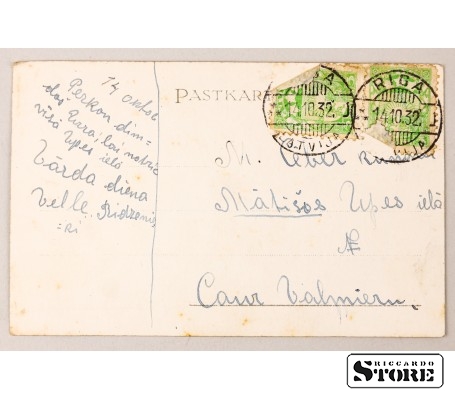 14 oktob.
Perkon dim-
dai Pura lai notric
visā Upes ielā
Vārda diena
Velle Ridzeni-
=ri
PASTKAR
RIGA
14.10.32.
LATVIJA
RIGA
14.10.32.
M.
Mātišos Upes ielā
№
Caur Valmieru.
RICCARDO
STORE